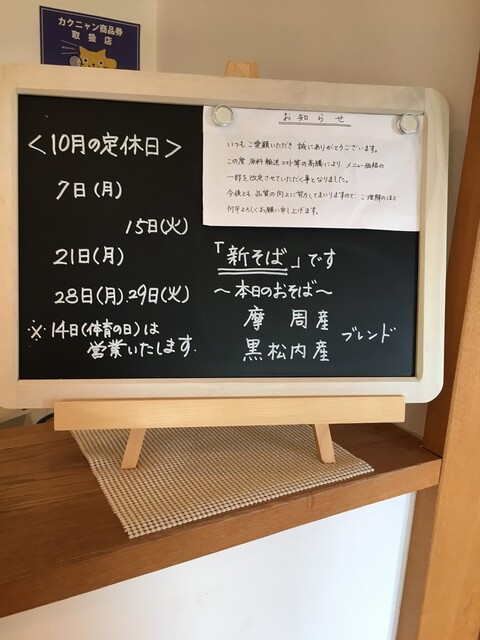 カクニャン商品券
取扱店
<10月の定休日>
7日(月)
15日(火)
21日(月)
28日(月).29日(火)
※14日(体育の日)は
営業いたします.
お知らせ
いつもご愛顧いただき誠にありがとうございます。
この度、原料・輸送コスト等の高騰により、メニュー価格の
一部を改定させていただく事となりました。
今後とも品質の向上に努力してまいりますので、ご理解のほど
何卒よろしくお願い申し上げます。
「新そば」です
～本日のおそば～
摩周産
黒松内産
ブレンド